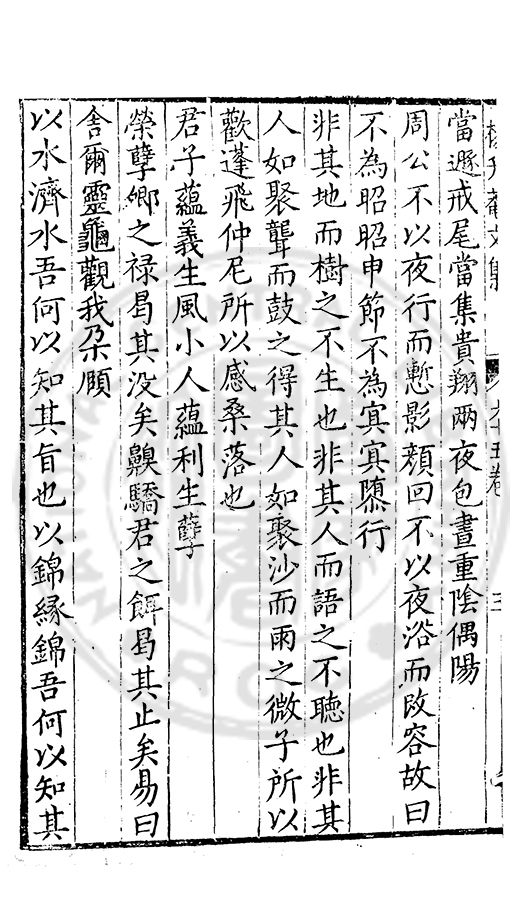 當遯戒尾當集貴翔兩夜包晝重陰偶陽
周公不以夜行而慙影顏回不以夜浴而改容故曰
不為昭昭申節不為㝠㝠隳行
非其地而樹之不生也非其人而語之不聽也非其
人如聚聾而鼓之得其人如聚沙而雨之微子所以
歡蓬飛仲尼所以感桑落也
君子蘊義生風小人蘊利生孽
榮孽卿之禄曷其没矣驕君之餌曷其止矣易曰
舎爾靈龜觀我朶頤
以水濟水吾何以知其旨也以錦緣錦吾何以知其